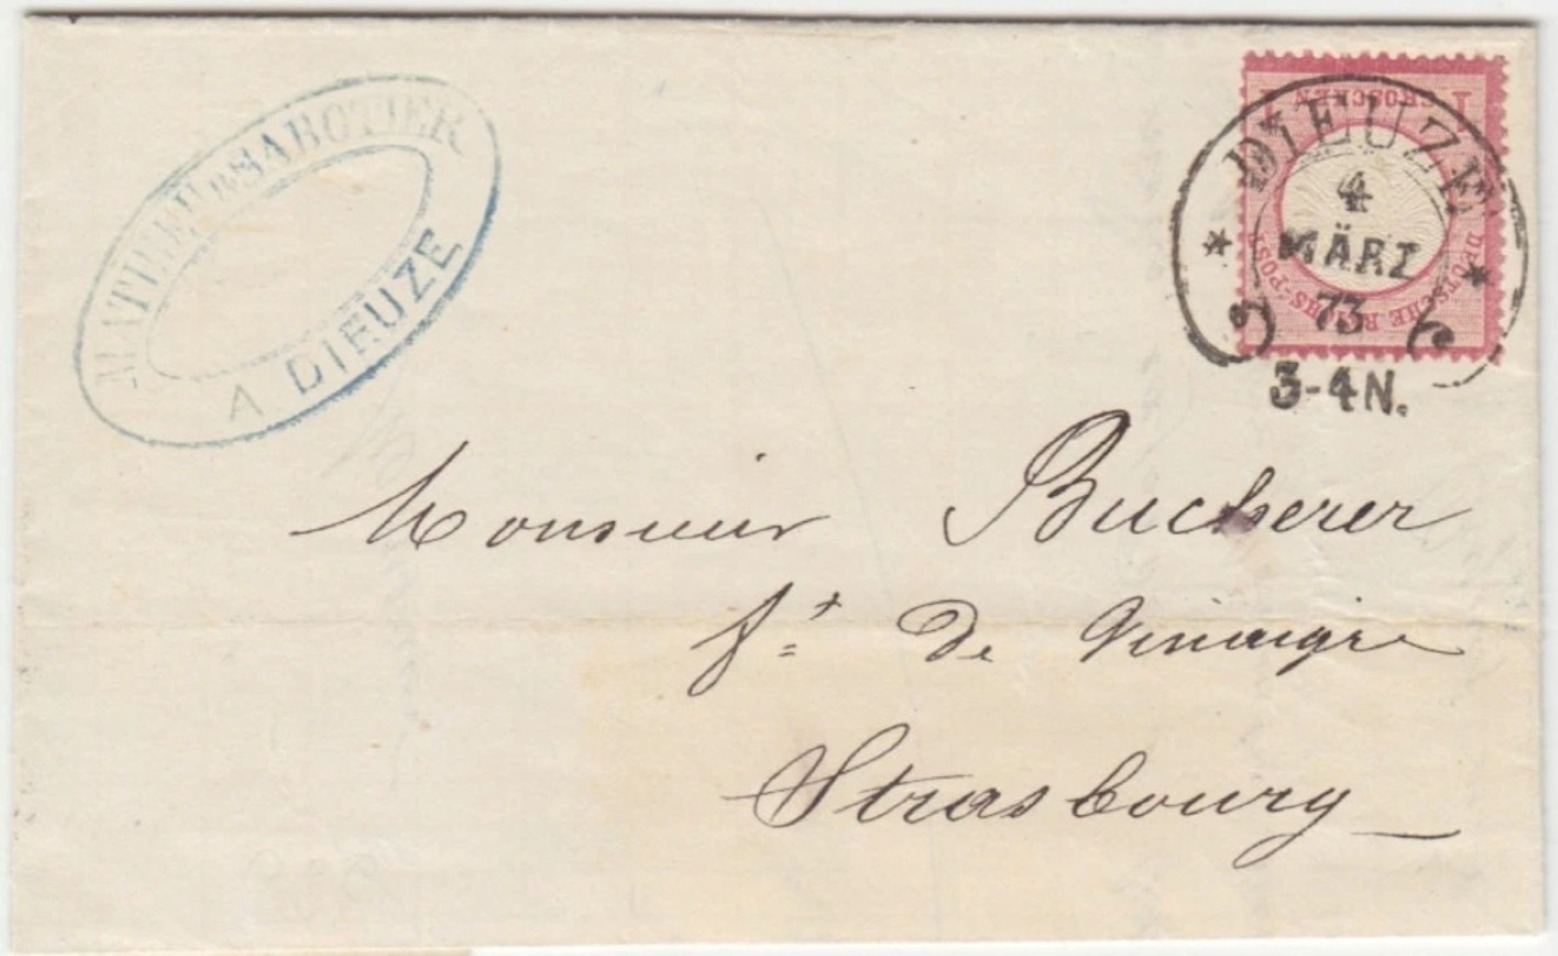 SABOTIER
A DIEUZE
1 GROSCHEN 1
DEUTSCHE REICHS-POST
DIEUZE
4
MÄRZ
73
3-4N.
Monsieur Bucherer
ft de Vinaigre
Strasbourg